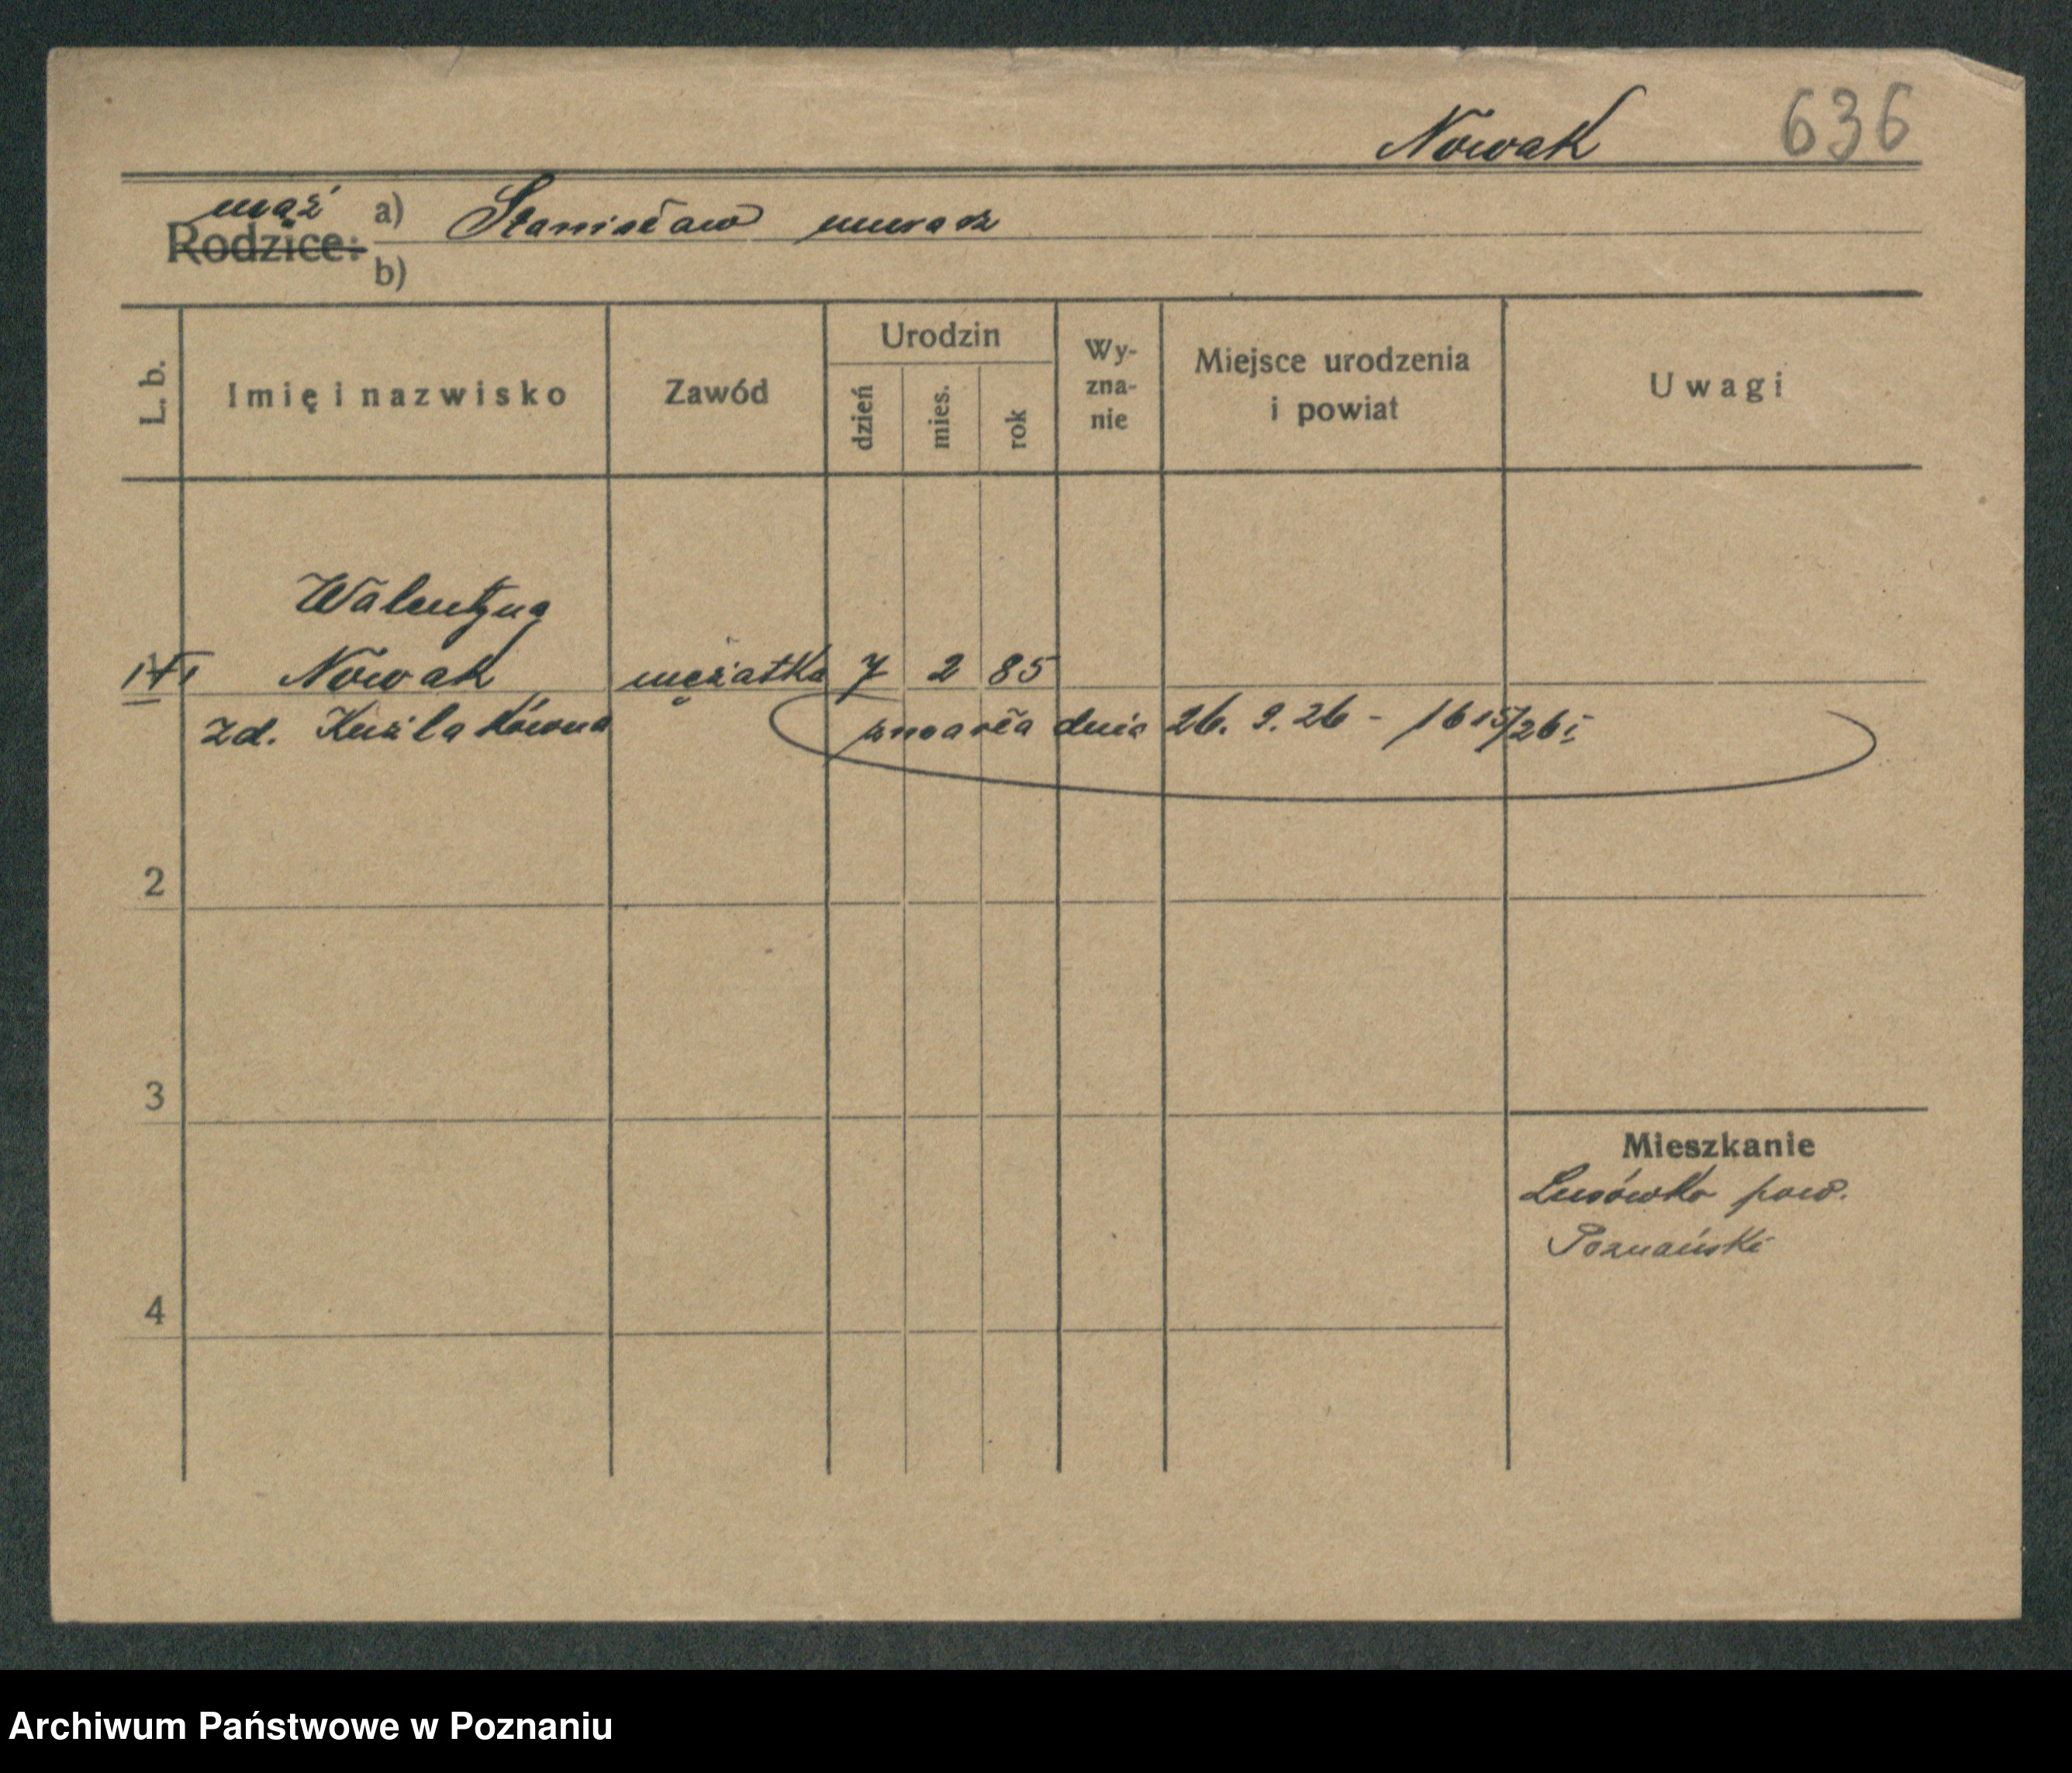 Nowak 636
mąż
Rodzice: a) Stanisław murarz
b)
L. b. Imię i nazwisko Zawód Urodzin dzień mies. rok Wy-zna-nie Miejsce urodzenia i powiat Uwagi
Walentyna
Nowak mężatka 7 2 85
zd. Kuźlakówna zmarła dnia 26. 9. 26 - 1615/26
2
3
Mieszkanie
Lusówko pow.
Poznański
4
Archiwum Państwowe w Poznaniu